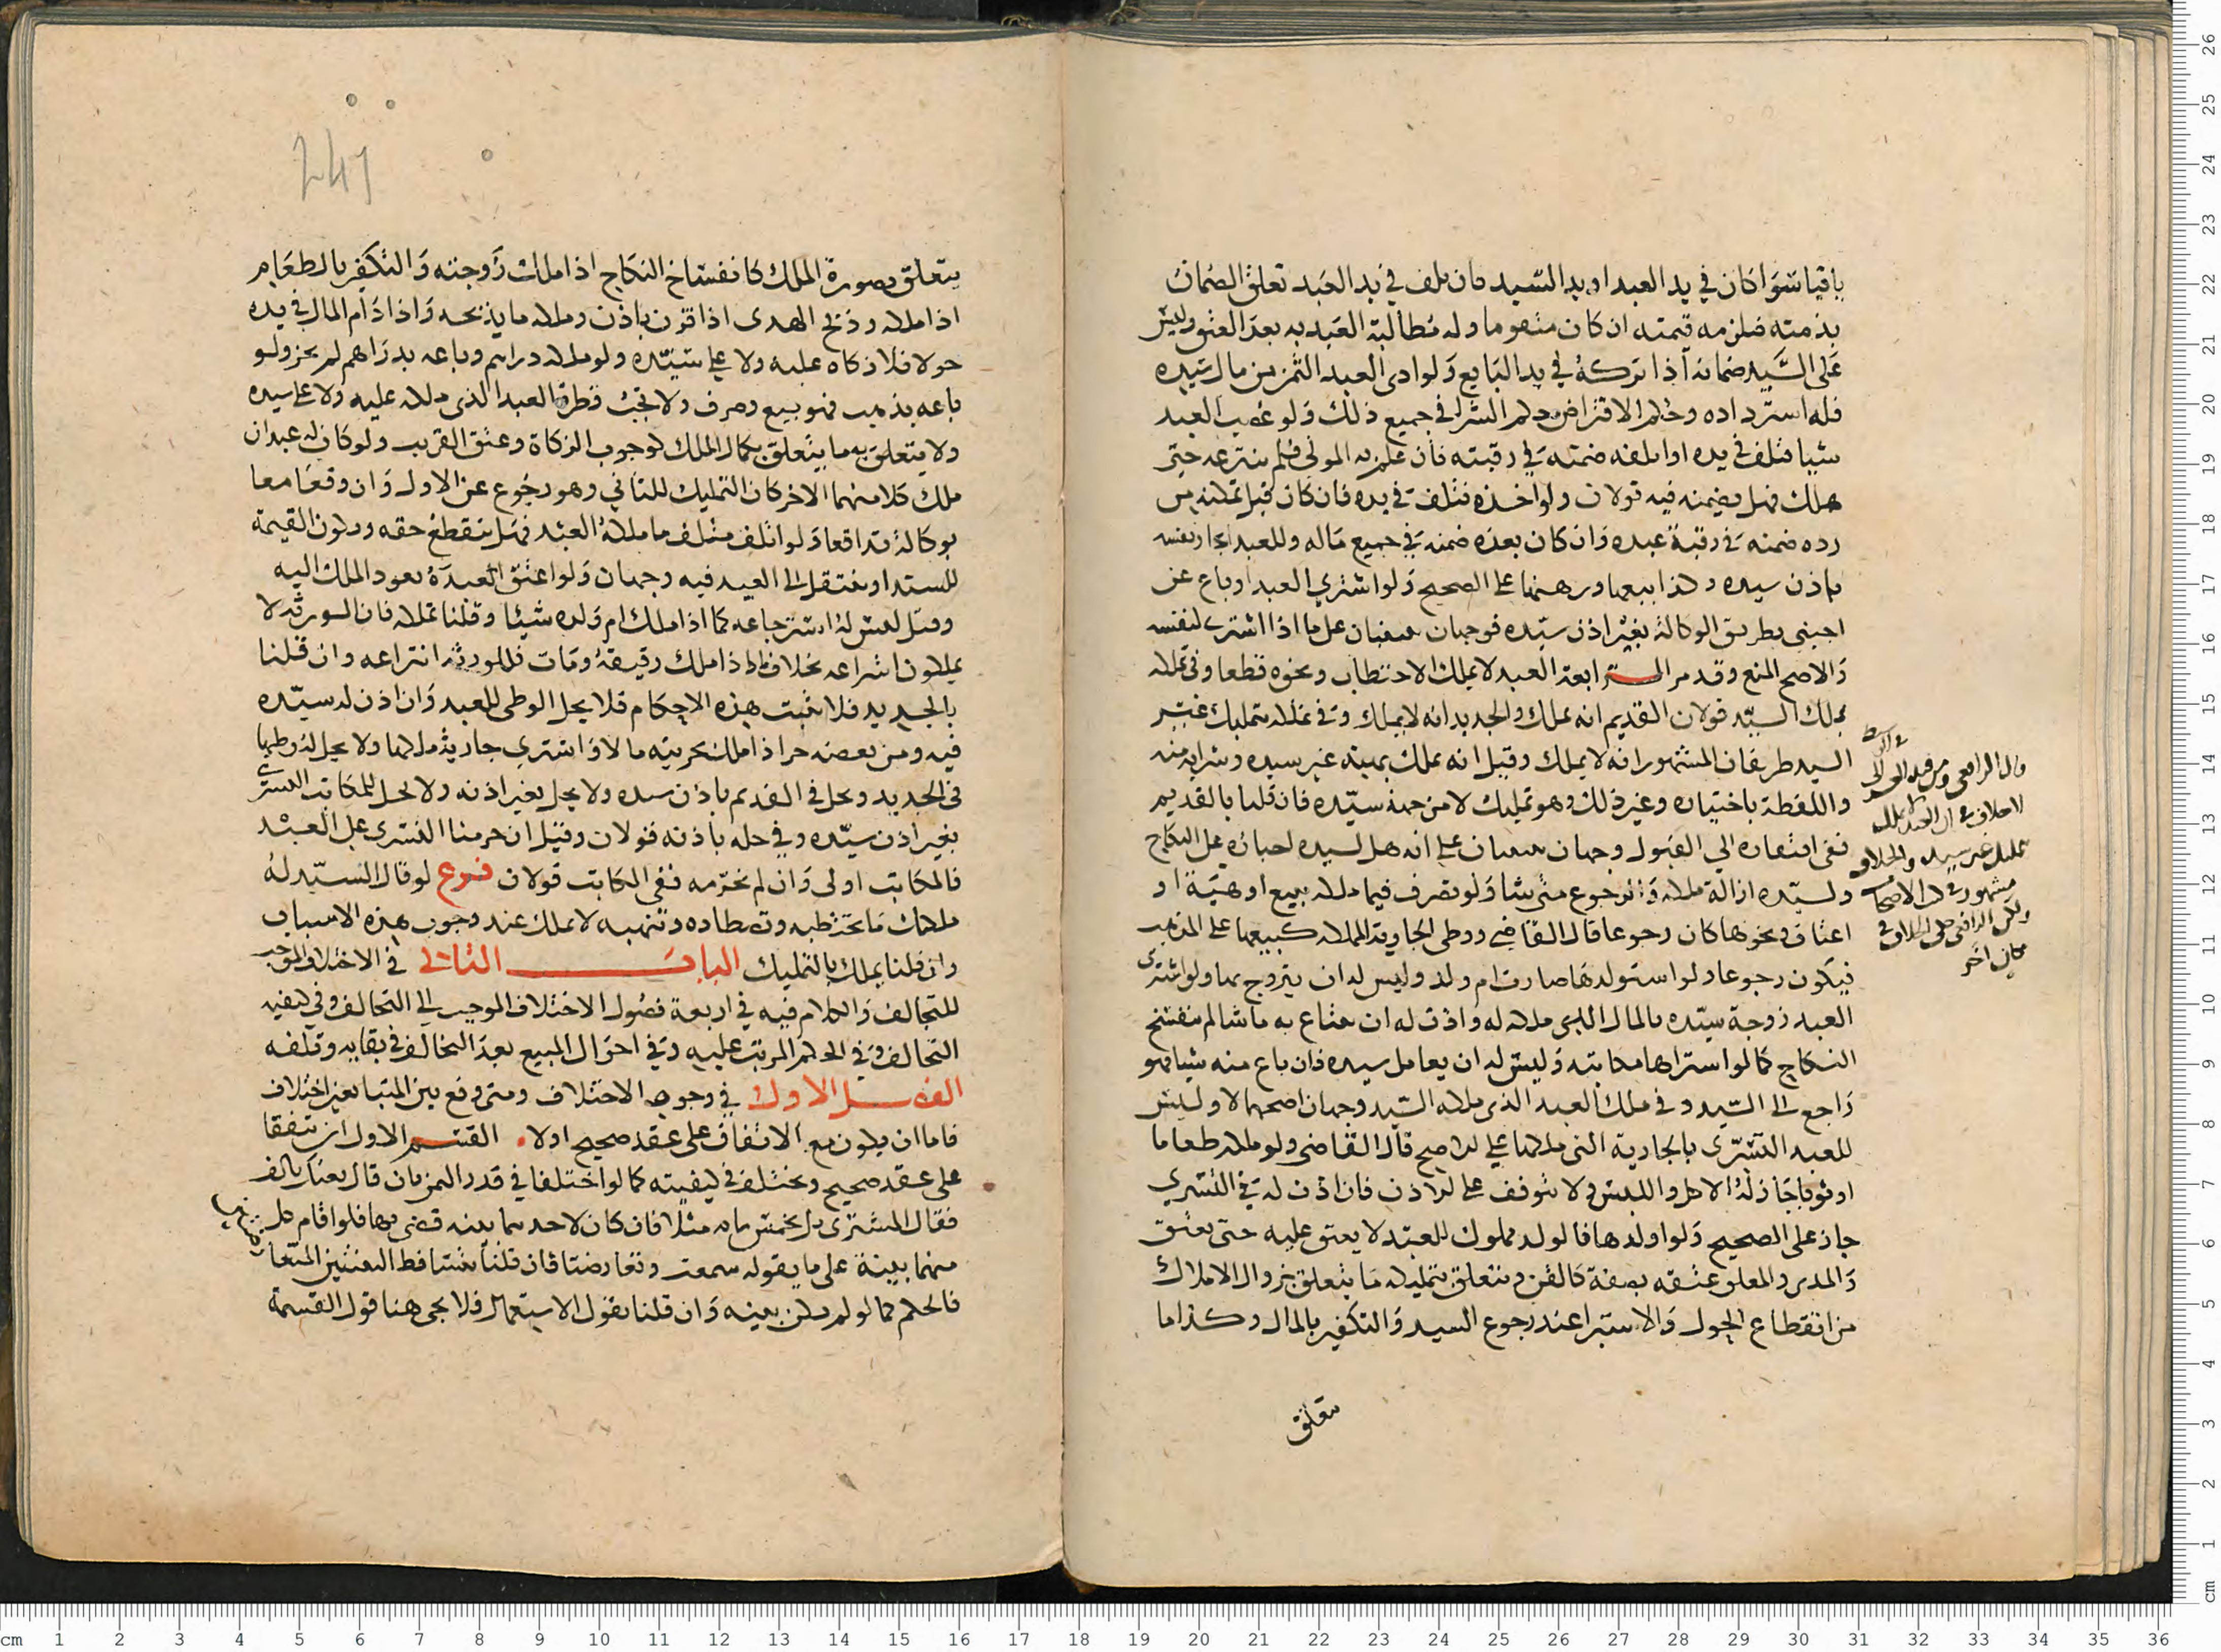 باقيا سوا كان في يد العبد او يد السيد فان تلف في يد العبد تعلق الضمان
بذمته فيلزمه قيمته ان كان متقوما وله مطالبة العبد به بعد العتق وليس
على السيد ضمانه اذا تركه في يد البايع ولو ادى العبد الثمن من مال سيده
فله استرداده وحكم الاقتراض حكم الشرا في جميع ذلك ولو غصب العبد
شيا فتلف في يده او اتلفه ضمنه في رقبته فان علم به المولى فلم ينتزعه حتى
هلك فهل يضمنه فيه قولان ولو اخذه فتلف في يده فان كان قبل تمكنه من
رده ضمنه في رقبة عبده وان كان بعده ضمنه في جميع ماله وللعبد ايجار نفسه
باذن سيده وكذا بيعها ورهنها على الصحيح ولو اشترى العبد او باع عن
اجنبي بطريق الوكالة بغير اذن سيده فوجهان مبنيان على ما اذا اشترى لنفسه
والاصح المنع وقد مر الرابعة العبد لا يملك الاحتطاب ونحوه قطعا وفي تملكه
بملك السيد قولان القديم انه يملك والجديد انه لا يملك وفي تملكه بتمليك غير
السيد طريقان المشهور انه لا يملك وقيل انه يملك بهبة غير سيده وشرايه منه
واللقطة باختياره وغير ذلك وهو تمليك لا من جهة سيده فان قلنا بالقديم
ففي افتقاره الي القبول وجهان مبنيان على انه هل لسيده اجباره على النكاح
ولسيده ازالة ملكه والرجوع متى شا ولو تصرف فيما ملكه ببيع او هبة او
اعتاق ونحوها كان رجوعا قال القاضي ووطى الجارية المملكه كبيعها على المذهب
فيكون رجوعا ولو استولدها صارت ام ولد وليس له ان يتزوج بها ولو اشترى
العبد زوجة سيده بالمال الذي ملكه له واذن له ان يبتاع به ما شا لم ينفسخ
النكاح كما لو اشتراها مكاتبه وليس له ان يعامل سيده فان باع منه شيا فهو
راجع الى السيد وفي ملك العبد الذى ملكه السيد وجهان اصحهما لا وليس
للعبد التسري بالجارية التي ملكها على الاصح قال القاضى ولو ملكه طعاما
او ثوبا جاز له الاكل واللبس ولا يتوقف على الاذن فان اذن له في التسري
جاز على الصحيح ولو اولدها فالولد مملوك للعبد لا يعتق عليه حتى يعتق
والمدبر والمعلق عتقه بصفة كالقن ويتعلق بتمليكه ما يتعلق بزوال الاملاك
من انقطاع الحول والاستبرا عند رجوع السيد والتكفير بالمال وكذا ما
يتعلق
قال الرافعي
لا خلاف في ان العبد لا يملك
بتمليك غير سيده والخلاف
مشهور
ولكن الرافعي حكى الخلاف في
مكان اخر
241
يتعلق بصورة الملك كانفساخ النكاح اذا ملك زوجته والتكفير بالطعام
اذا ملكه وذبح الهدى اذا قرن باذن وملكه ما يذبحه واذا دام المال في يده
حولا فلا زكاه عليه ولا على سيده ولو ملكه دراهم وباعه بدراهم لم يجز ولو
باعه بذهب فهو بيع وصرف ولا تجب فطرة العبد الذى ملكه عليه ولا على سيده
ولا يتعلق به ما يتعلق بكمال الملك كوجوب الزكاة وعتق القريب ولو كان له عبدان
ملك كلا منهما الاخر كان التمليك للثاني وهو رجوع عن الاول وان وقعا معا
بوكالة تدافعا ولو اتلف متلف ما ملكه العبد فهل ينقطع حقه وتكون القيمة
للسيد او ينتقل الى العبد فيه وجهان ولو اعتق العبد يعود الملك اليه
وقيل ليس له استرجاعه كما اذا ملك ام ولده شيئا وقلنا تملكه فان الورثه لا
يملكون انتزاعه بخلاف ما اذا ملك رقيقه ومات فللورثة انتزاعه وان قلنا
بالجديد فلا تثبت هذه الاحكام فلا يحل الوطى للعبد وان اذن له سيده
فيه ومن بعضه حر اذا ملك بحريته مالا واشترى جارية ملكها ولا يحل له وطيها
في الجديد ويحل في القديم باذن سيده ولا يحل بغير اذنه ولا يحل للمكاتب التسري
بغير اذن سيده وفي حله باذنه قولان وقيل ان حرمنا التسرى على العبد
فالمكاتب اولى وان لم نحرمه ففي المكاتب قولان فرع لو قال السيد له
ملكتك ما تحتطبه وتصطاده وتتهبه لا يملك عند وجوب هذه الاسباب
وان قلنا يملك بالتمليك الباب الثاني في الاختلاف الموجب
للتحالف والكلام فيه في اربعة فصول الاختلاف الموجب الى التحالف وفي كيفيه
التحالف وفي الحكم المرتب عليه وفي احوال المبيع بعد التحالف في بقايه وتلفه
الفصل الاول في وجوه الاختلاف ومتى وقع بين المتبايعين اختلاف
فاما ان يكون مع الاتفاق على عقد صحيح اولا القسم الاول ان يتفقا
على عقد صحيح ويختلف في كيفيته كما لو اختلفا في قدر الثمن بان قال بعتك بالف
فقال المشترى بل بخمس مايه مثلا فان كان لاحدهما بينه قضى بها فلو اقام كل
منهما بينة على ما يقوله سمعت وتعارضتا فان قلنا يتساقط البينتين المتعا
فالحكم كما لو لم يكن بينه وان قلنا بقول الاستعمال فلا يجى هنا قول القسمة